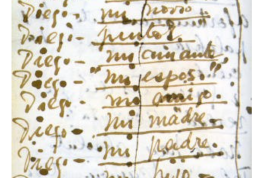 Diego -
Diego - pintor.
Diego - mi amante
Diego - "mi esposo"
Diego - mi amigo.
Diego - mi madre -
Diego - mi padre.
Diego - mi hijo